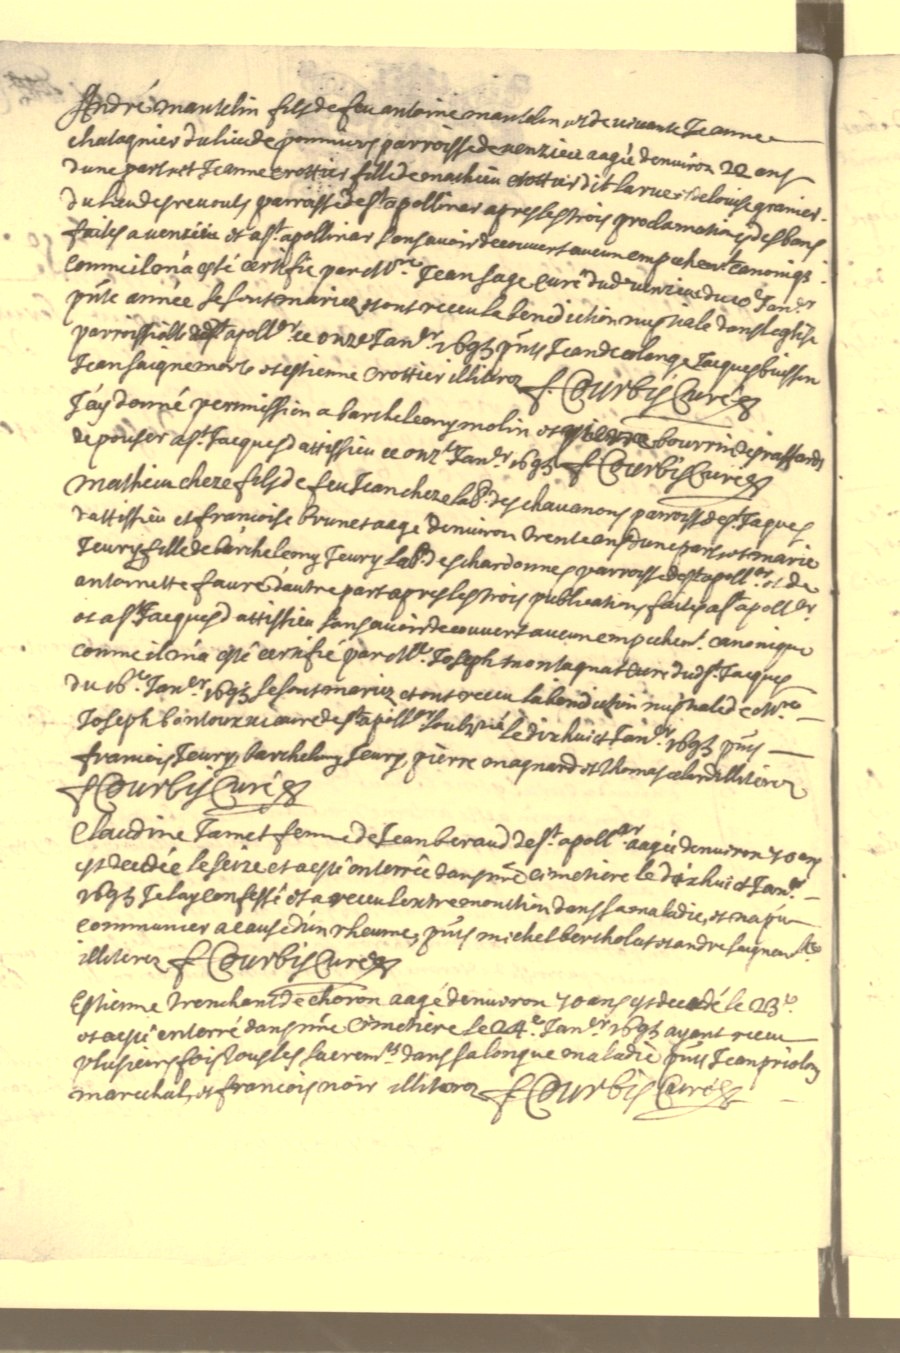 André mantelin fils de feu antoine mantelin, et de vivante Jeanne
chatagnier du lieu de pommiers parroisse de venzieu aagé denviron 22 ans
dune part et Jeanne crottier fille de mathieu crottier dit larue et de louise granier
du lieu des revouls parroisse de st apollinar apres les trois proclamations des bans
faites a venzieu et a st apollinar sans avoir decouvert aucun empechent canoniq
comme il m'a esté certifié par Mre Jean sage curé dud venzieu du 10e Janer
pnte année se sont mariez et ont receu la benediction nuptiale dans leglise
parroissialle de st apollr ce onze Janer 1693 pnts Jean de colange Jacques buisson
Jean et estienne crottier illiterez f Courbis Curé
J'ay donné permission a barthelemy molin et a pierre bourrin
depouser a st Jacques d'attissieu ce onze Janer 1693 f Courbis Curé
mathieu cheze fils de feu Jean cheze labr des chavanons parroisse de st Jaques
dattissieu et francoise brunet aagé denviron trente ans dune part et marie
Jeury fille de barthelemy Jeury labr des chardonnes parroisse de st apollr et de
antoinette faure d'autre part apres les trois publications faites a st apollr
et a st Jacques d'attissieu sans avoir decouvert aucun empechent canonique
comme il m'a esté certifié par Mre Joseph montagnat curé dud st Jacques
du 16e Janer 1693 se sont mariez et ont receu la benediction nuptiale de Mre
Joseph bontoux vicaire de st apollr le dixhuict Janr 1693 pnts
francois Jeury, barthelemy Jeury, pierre magnard et thomas illiterez
f Courbis Curé
Claudine Jamet femme de Jean beraud de st apollr aagée denviron 70 ans
est decedée le seize et a esté enterrée dans nre cimetiere le dixhuict Janer
1693 Je lay confessé et a receu lextremonction dans sa maladie, et na pu
communier a cause d'un rheume, pnts michel bertholat et andre
illiterez f Courbis Curé
Estienne trenchant de choron aagé denviron 70 ans est decedé le 23e
et a esté enterré dans nre cimetiere le 24e Janer 1693 ayant receu
plusieurs fois tous les sacremts dans sa longue maladie pnts Jean priolon
marechal, et francois noir illiterez f Courbis Curé